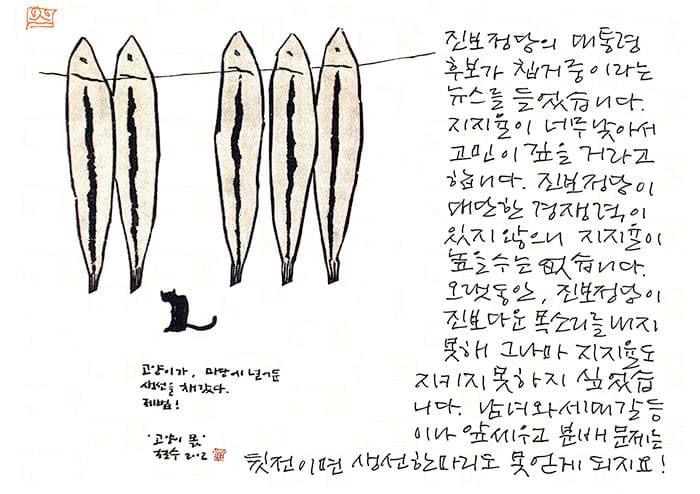 고양이가, 마당에 널어둔
생선을 채갔다.
제법!
'고양이 몫'
철수 2012
진보정당의 대통령
후보가 칩거중이라는
뉴스를 들었습니다.
지지율이 너무낮아서
고민이 깊을 거라고
합니다. 진보정당이
대단한 경쟁력이
있지 않으니 지지율이
높을수는 없습니다.
오랫동안, 진보정당이
진보다운 목소리를 내지
못해 그나마 지지율도
지키지 못하지 싶었습
니다. 남녀와 세대갈등
이나 앞세우고 분배 문제는
뒷전이면 생선한마리도 못얻게 되지요!